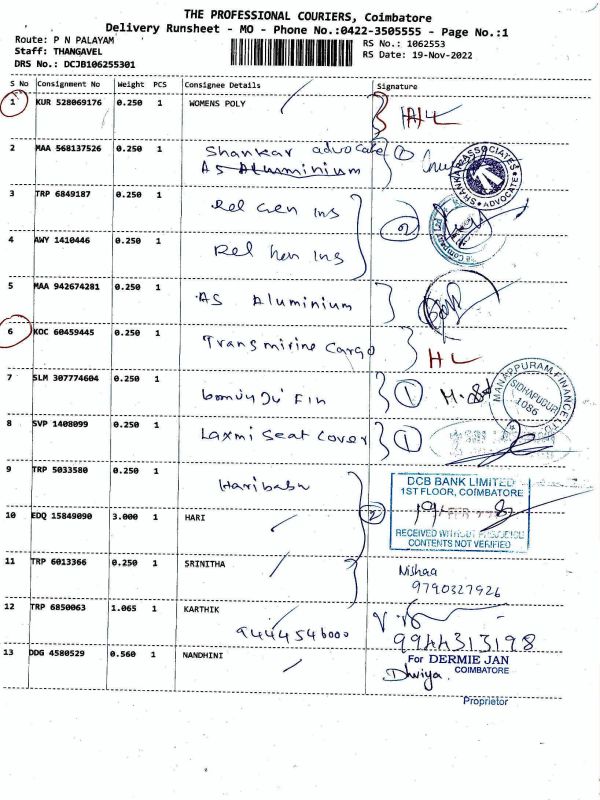 THE PROFESSIONAL COURIERS, Coimbatore
Delivery Runsheet - MO - Phone No.:0422-3505555 - Page No.:1
Route: P N PALAYAM
Staff: THANGAVEL
DRS No.: DCJB106255301
RS No.: 1062553
RS Date: 19-Nov-2022
S No Consignment No Weight PCS Consignee Details Signature
1 KUR 528069176 0.250 1 WOMENS POLY
2 MAA 568137526 0.250 1 Shankar advocate 1
AS Aluminium
SHANKAR ASSOCIATES
ADVOCATE
3 TRP 6849187 0.250 1 Rel Gen Ins 2
4 AWY 1410446 0.250 1 Rel Gen Ins
5 MAA 942674281 0.250 1 AS Aluminium
6 KOC 60459445 0.250 1 Transmirine Cargo HL
7 SLM 307774604 0.250 1 Fin 1
MANAPPURAM FINANCE LTD
SIDHAPUDUR
1086
8 SVP 1408099 0.250 1 Laxmi Seat Cover 1
9 TRP 5033580 0.250 1 Haribabu
DCB BANK LIMITED
1ST FLOOR, COIMBATORE
10 EDQ 15849090 3.000 1 HARI 2
RECEIVED WITHOUT PREJUDICE
CONTENTS NOT VERIFIED
11 TRP 6013366 0.250 1 SRINITHA
Nishaa
9790327926
12 TRP 6850063 1.065 1 KARTHIK
9444546000
9944313198
13 DDG 4580529 0.560 1 NANDHINI
For DERMIE JAN
COIMBATORE
Dhviya
Proprietor